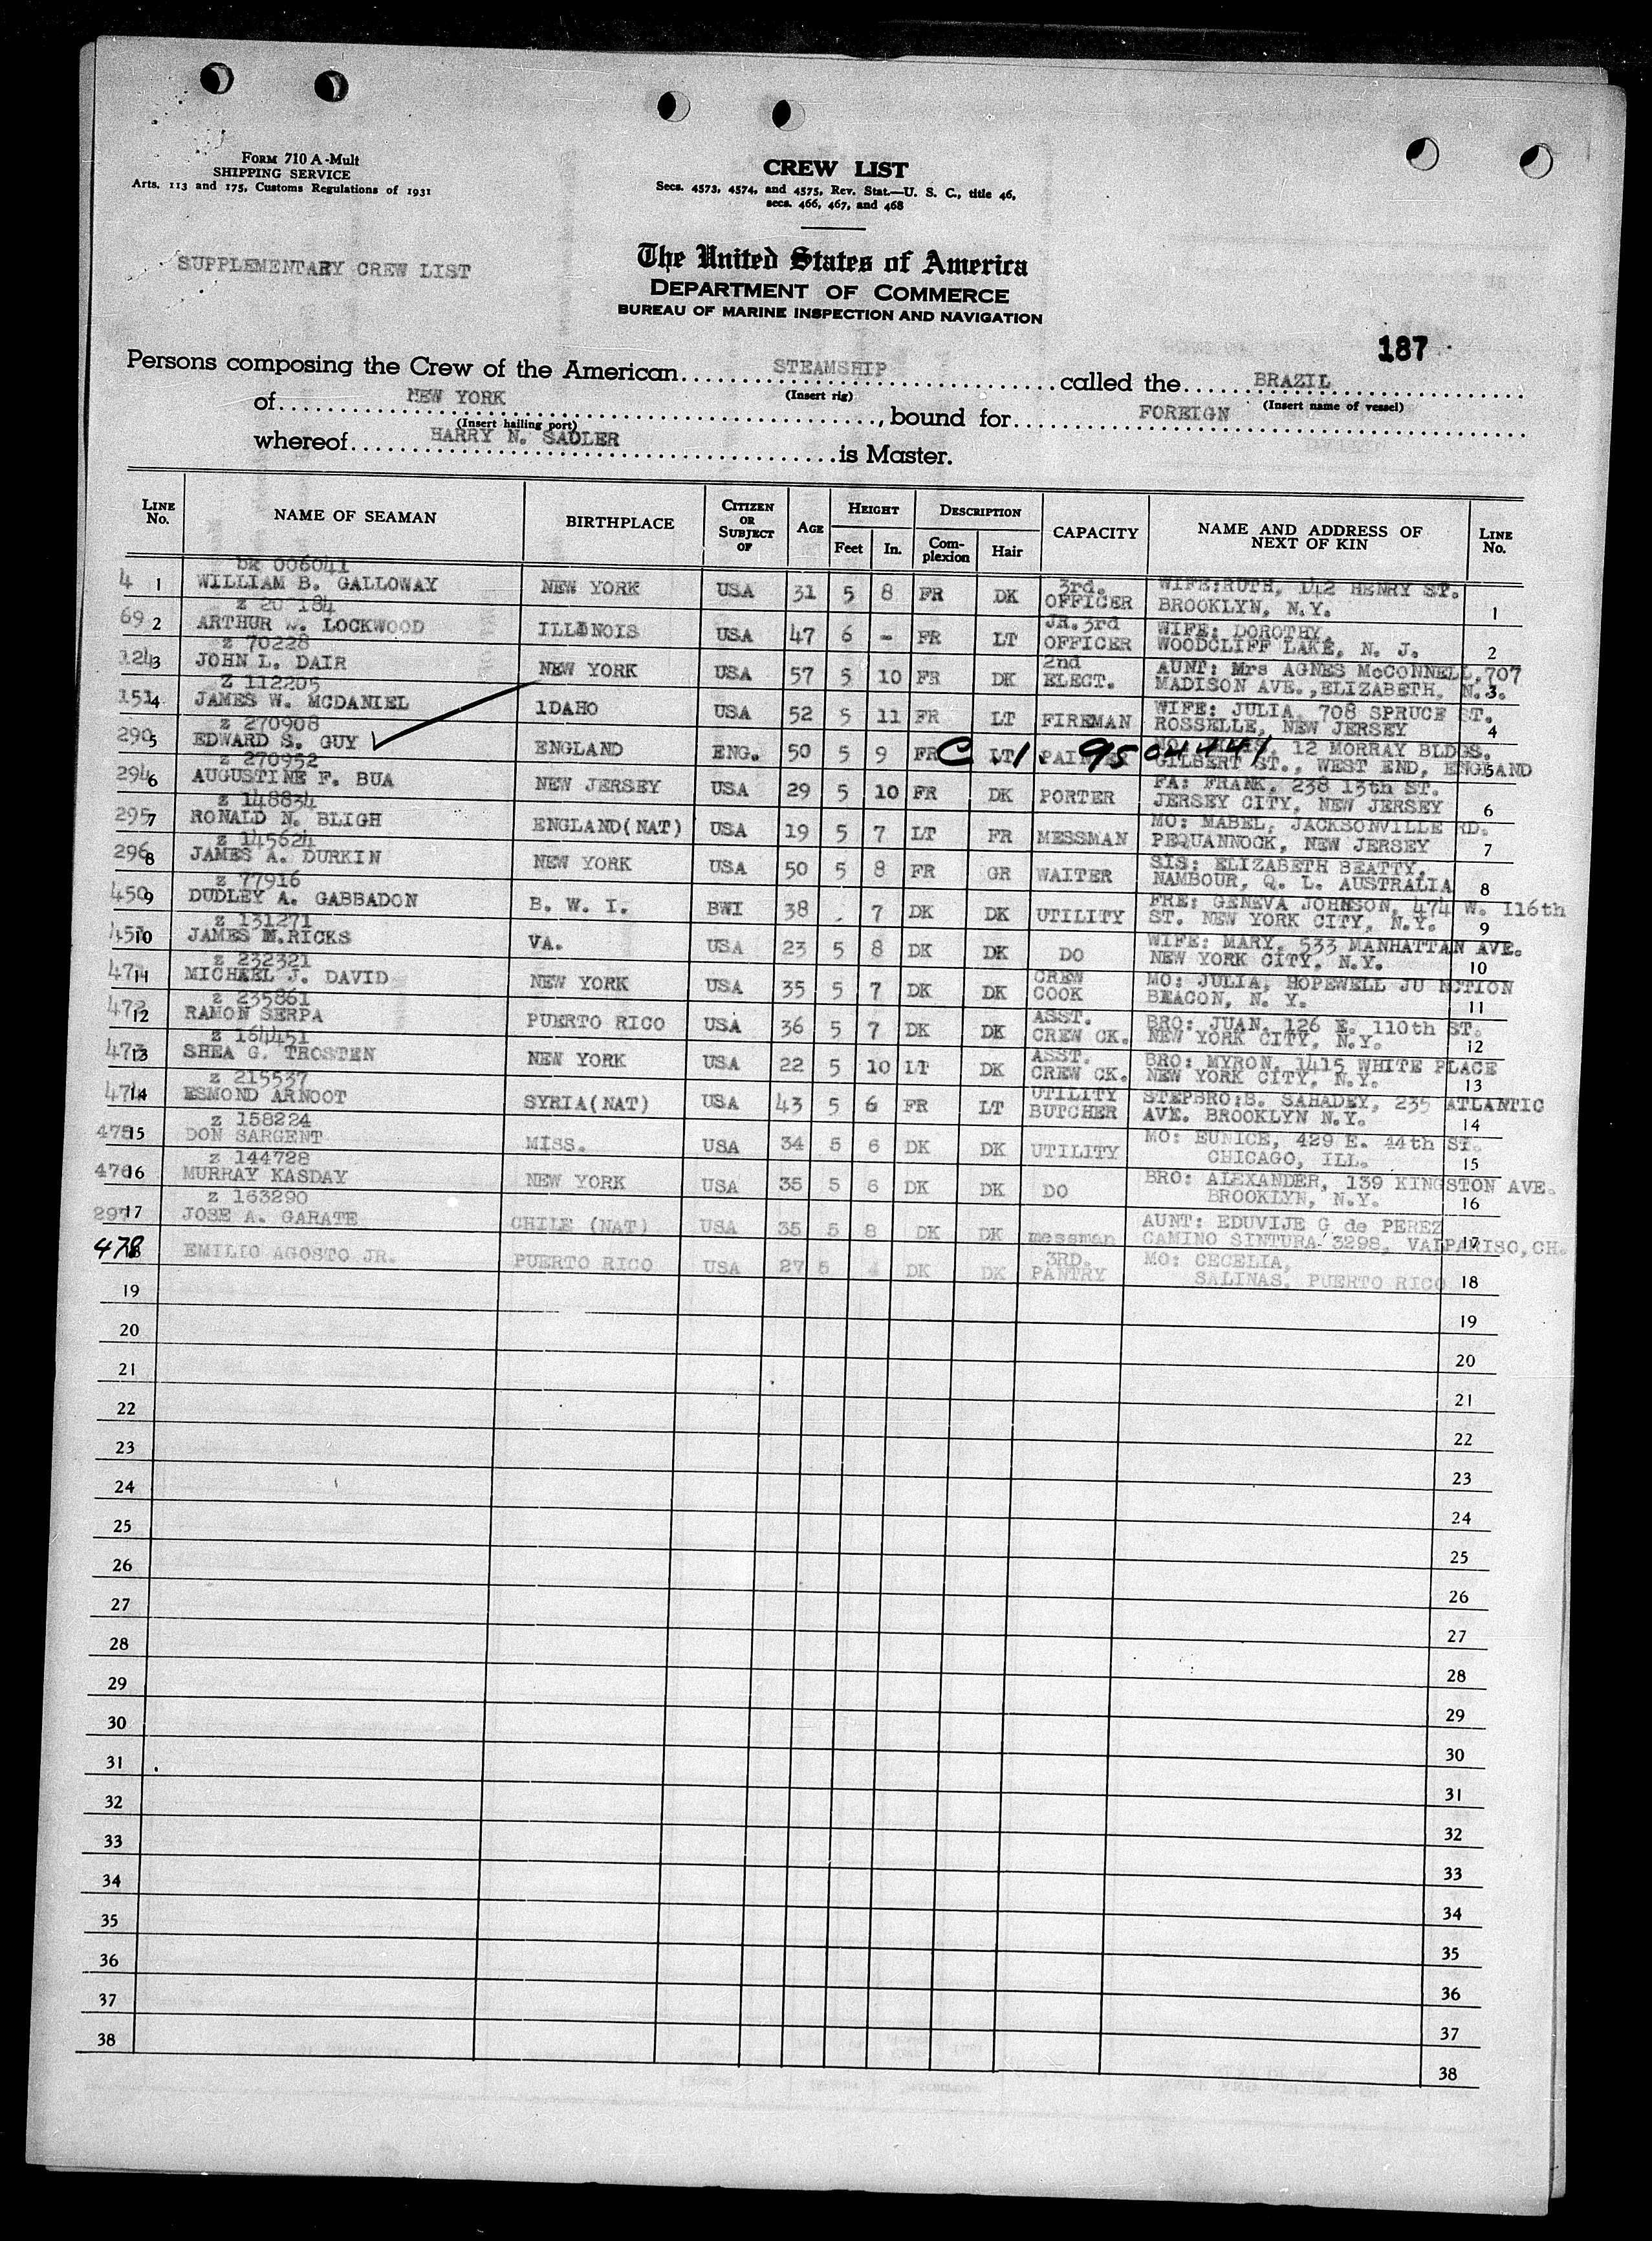 FORM 710 A-Mult
SHIPPING SERVICE
Arts. 113 and 175, Customs Regulations of 1931
CREW LIST
Secs. 4573, 4574, and 4575, Rev. Stat.—U. S. C., title 46,
secs. 466, 467, and 468
SUPPLEMENTARY CREW LIST
The United States of America
DEPARTMENT OF COMMERCE
BUREAU OF MARINE INSPECTION AND NAVIGATION
187
Persons composing the Crew of the American STEAMSHIP called the BRAZIL
(Insert rig) (Insert name of vessel)
of NEW YORK, bound for FOREIGN
(Insert hailing port)
whereof HARRY N. SADLER is Master.
LINE No. NAME OF SEAMAN BIRTHPLACE CITIZEN OR SUBJECT OF AGE HEIGHT Feet In. DESCRIPTION Complexion Hair CAPACITY NAME AND ADDRESS OF NEXT OF KIN LINE No.
bk 006041
4 1 WILLIAM B. GALLOWAY NEW YORK USA 31 5 8 FR DK 3rd. OFFICER WIFE:RUTH, 142 HENRY ST. BROOKLYN, N.Y. 1
z 20 184
69 2 ARTHUR LOCKWOOD ILLINOIS USA 47 6 - FR LT JR.3rd OFFICER WIFE: DOROTHY, WOODCLIFF LAKE, N. J. 2
z 70228
124 3 JOHN L. DAIR NEW YORK USA 57 5 10 FR DK 2nd ELECT. AUNT: Mrs AGNES McCONNELL, 707 MADISON AVE.,ELIZABETH, N.J. 3
Z 112205
151 4 JAMES W. MCDANIEL IDAHO USA 52 5 11 FR LT FIREMAN WIFE: JULIA, 708 SPRUCE ST. ROSSELLE, NEW JERSEY 4
z 270908
290 5 EDWARD S. GUY ENGLAND ENG. 50 5 9 FR LT PAINTER 12 MORRAY BLDGS. GILBERT ST., WEST END, ENGLAND 5
C 1 9504441
z 270952
294 6 AUGUSTINE F. BUA NEW JERSEY USA 29 5 10 FR DK PORTER FA: FRANK, 238 13th ST. JERSEY CITY, NEW JERSEY 6
z 148834
295 7 RONALD N. BLIGH ENGLAND(NAT) USA 19 5 7 LT FR MESSMAN MO: MABEL, JACKSONVILLE RD. PEQUANNOCK, NEW JERSEY 7
z 145624
296 8 JAMES A. DURKIN NEW YORK USA 50 5 8 FR GR WAITER SIS: ELIZABETH BEATTY, NAMBOUR, Q. L. AUSTRALIA 8
z 77916
450 9 DUDLEY A. GABBADON B. W. I. BWI 38 7 DK DK UTILITY FRE: GENEVA JOHNSON, 474 W. 116th ST. NEW YORK CITY, N.Y. 9
z 131271
451 10 JAMES M.RICKS VA. USA 23 5 8 DK DK DO WIFE: MARY, 533 MANHATTAN AVE. NEW YORK CITY, N.Y. 10
z 232321
471 11 MICHAEL J. DAVID NEW YORK USA 35 5 7 DK DK CREW COOK MO: JULIA, HOPEWELL JU NCTION BEACON, N. Y. 11
z 235861
472 12 RAMON SERPA PUERTO RICO USA 36 5 7 DK DK ASST. CREW CK. BRO: JUAN, 126 E. 110th ST. NEW YORK CITY, N.Y. 12
z 164451
473 13 SHEA G. TROSTEN NEW YORK USA 22 5 10 LT DK ASST. CREW CK. BRO: MYRON, 1415 WHITE PLACE NEW YORK CITY, N.Y. 13
z 215537
474 14 ESMOND ARNOOT SYRIA(NAT) USA 43 5 6 FR LT UTILITY BUTCHER STEPBRO:B. SAHADEY, 235 ATLANTIC AVE. BROOKLYN N.Y. 14
z 158224
475 15 DON SARGENT MISS. USA 34 5 6 DK DK UTILITY MO: EUNICE, 429 E. 44th ST. CHICAGO, ILL. 15
z 144728
476 16 MURRAY KASDAY NEW YORK USA 35 5 6 DK DK DO BRO: ALEXANDER, 139 KINGSTON AVE. BROOKLYN, N.Y. 16
z 163290
297 17 JOSE A. GARATE CHILE (NAT) USA 35 5 8 DK DK messman AUNT: EDUVIJE G de PEREZ CAMINO SINTURA 3298, VALPARISO,CH. 17
478 EMILIO AGOSTO JR. PUERTO RICO USA 27 5 4 DK DK 3RD. PANTRY MO: CECELIA, SALINAS, PUERTO RICO 18
19 19
20 20
21 21
22 22
23 23
24 24
25 25
26 26
27 27
28 28
29 29
30 30
31 31
32 32
33 33
34 34
35 35
36 36
37 37
38 38